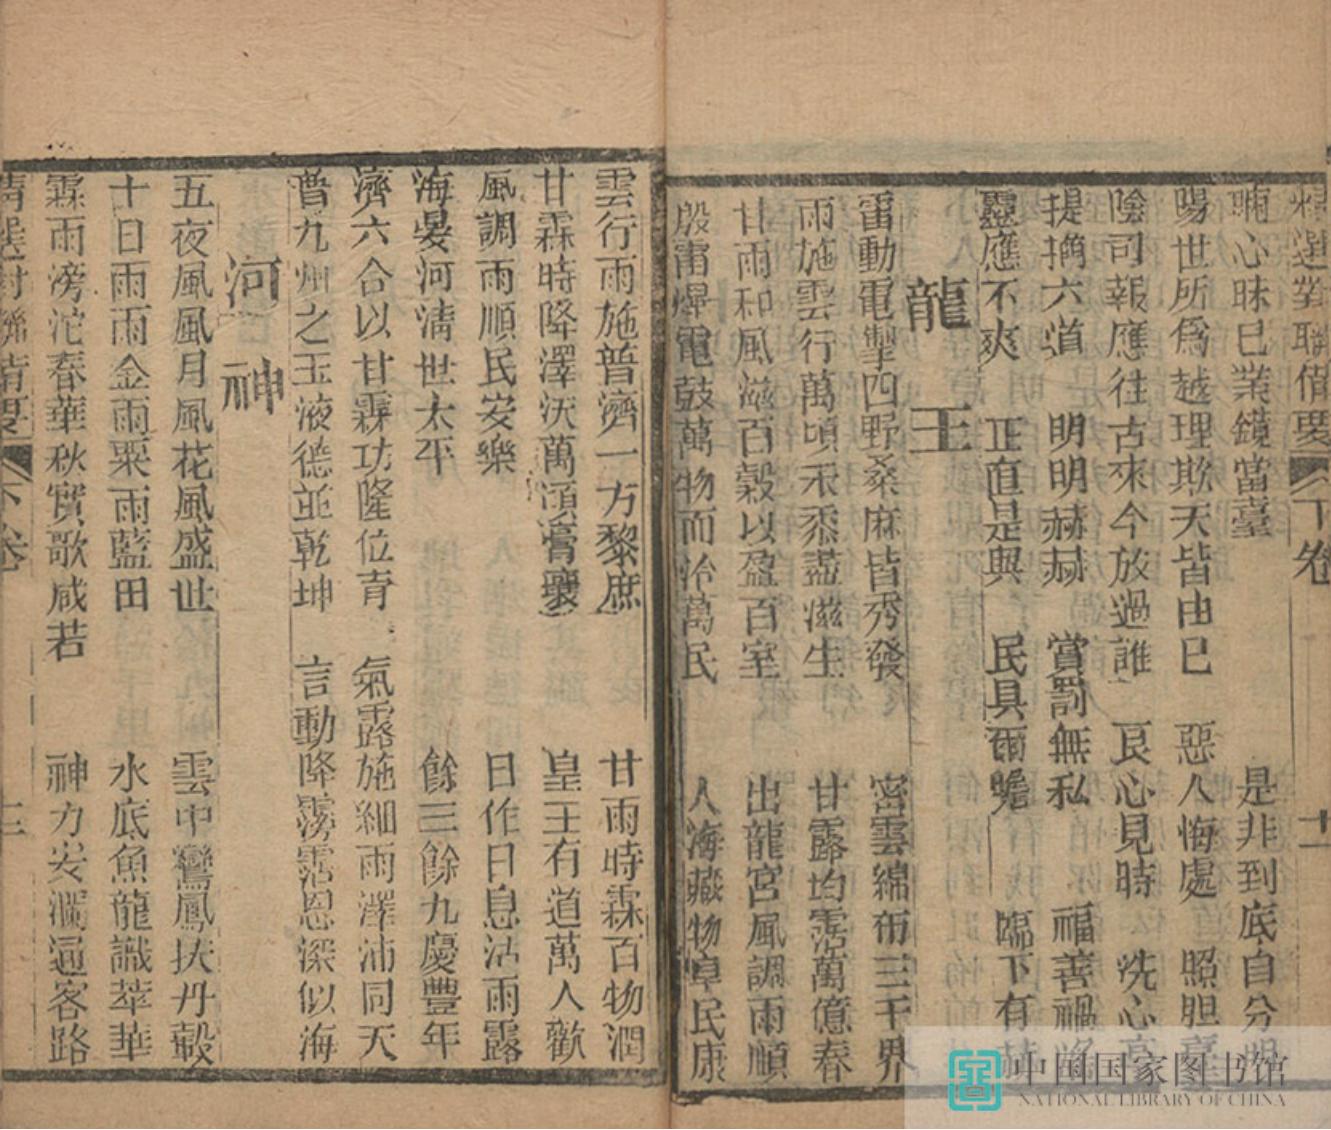 精選對聯備要 下卷
心昧巳業鏡當臺 是非到底自分明
陽世所為越理欺天皆由巳 惡人悔處 照胆臺
陰司報應往古來今放過誰 良心見時 洗心亭
提撕六道 明明赫赫 賞罰無私 福善禍
靈應不爽 正直是與 民具爾瞻 臨下有赫
龍王
雷動電掣四野桑麻皆秀發 密雲綿布三千界
雨施雲行萬頃禾黍盡滋生 甘露均霑萬億春
甘雨和風滋百穀以盈百室 出龍宮風調雨順
殷雷燁電鼓萬物而治萬民 人海藏物阜民康
雲行雨施普濟一方黎庶 甘雨時霖百物潤
甘霖時降澤沃萬頃膏壤 皇王有道萬人歡
風調雨順民安樂 日作日息沾雨露
海晏河清世太平 餘三餘九慶豐年
濟六合以甘霖功隆位育 氣露施細雨澤沛同天
普九州之玉液德並乾坤 言動降霶霑恩深似海
河神
五夜風風月風花風盛世 雲中鸞鳳扶丹轂
十日雨雨金雨粟雨藍田 水底魚龍識萃華
霖雨滂沱春華秋實歌咸若 神力安瀾通客路
精選對聯備要 下卷
中国国家图书馆
NATIONAL LIBRARY OF CHINA